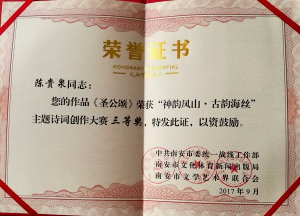 荣誉证书
HONORARY
陈贵泉同志：
您的作品《圣公颂》荣获“神韵凤山·古韵海丝”
主题诗词创作大赛三等奖，特发此证，以资鼓励。
中共南安市委统一战线工作部
南安市文化体育新闻出版局
南安市文学艺术界联合会
2017年9月